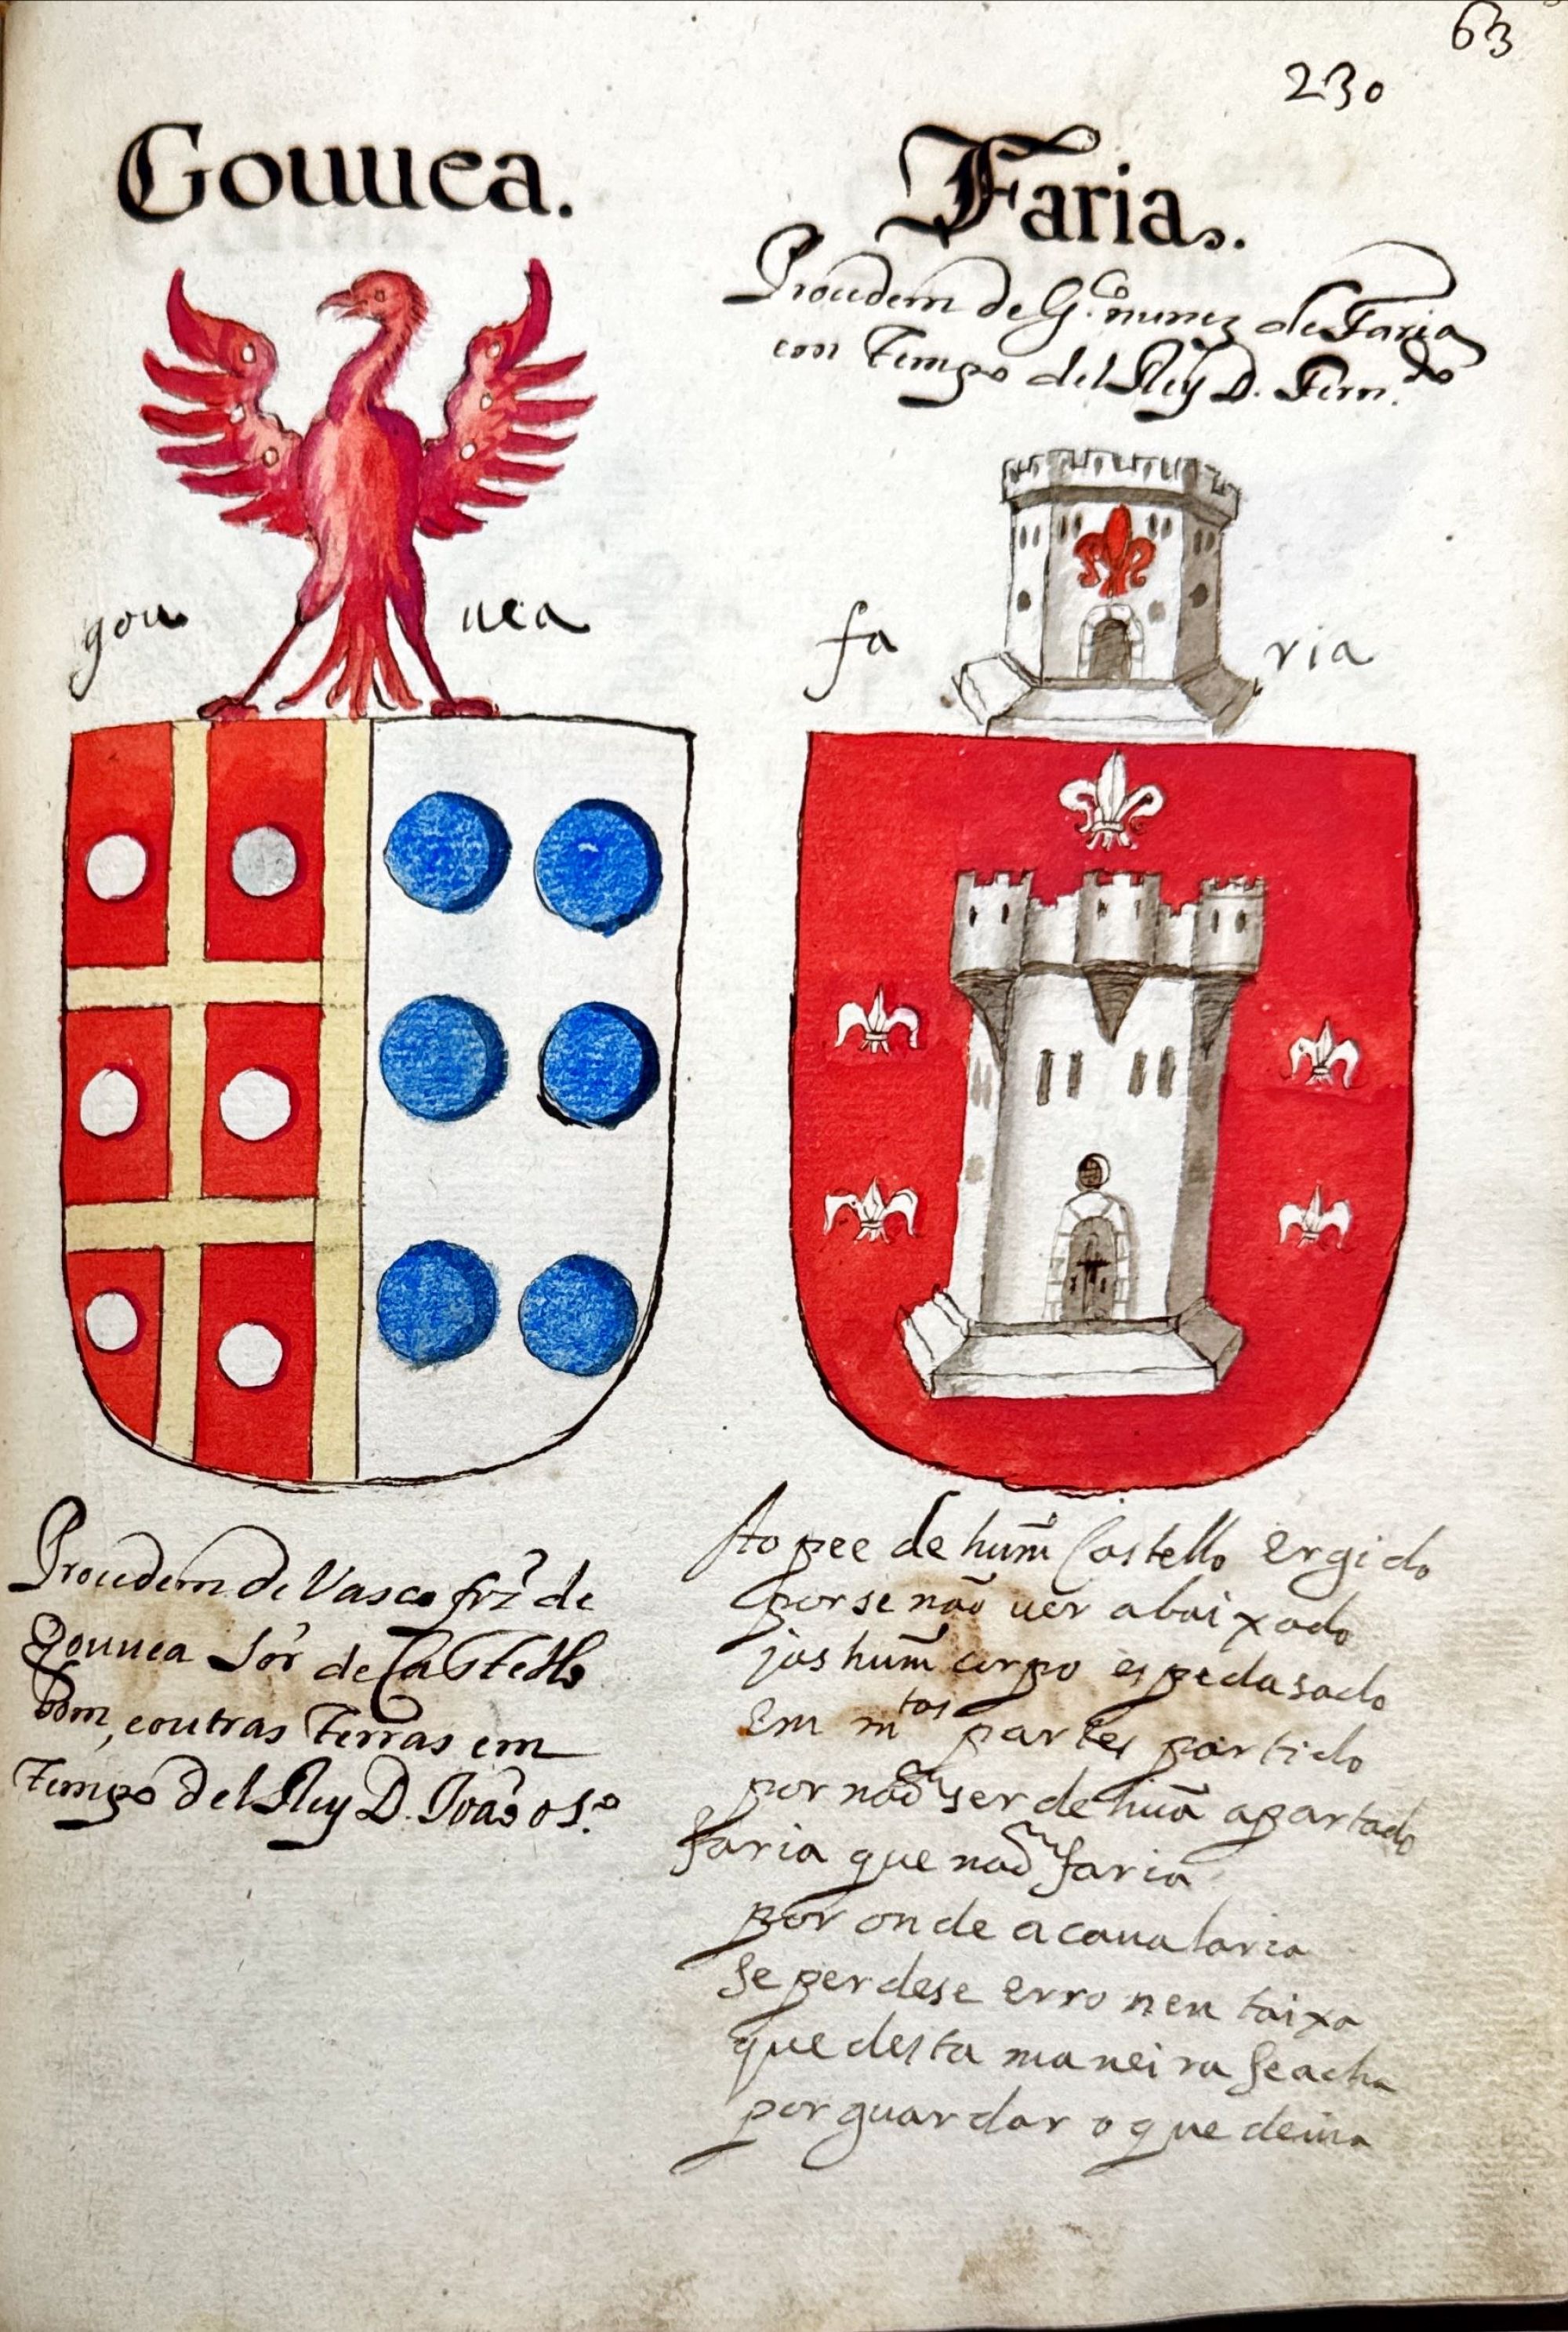 63
230
Gouuea.
Farias.
Proudem de G.º nunez de Faria
em Tempo del Rey D. Fern.do
gou uea
fa ria
Proudem de Vasco frz̃ de
Gouuea sõr de Castello
bom, e outras Terras em
Tempo del Rey D. Joaõ o S.º
Ao pee de hum̃ Castello ergido
por se não uer abaixado
jas hum̃ corpo espedasado
em m.tas partes partido
por naõ ser de huã apartado
faria que naõ faria
por onde a caualaria
se perdese erro nen taixa
que desta maneira se acha
por guardar o que deuia